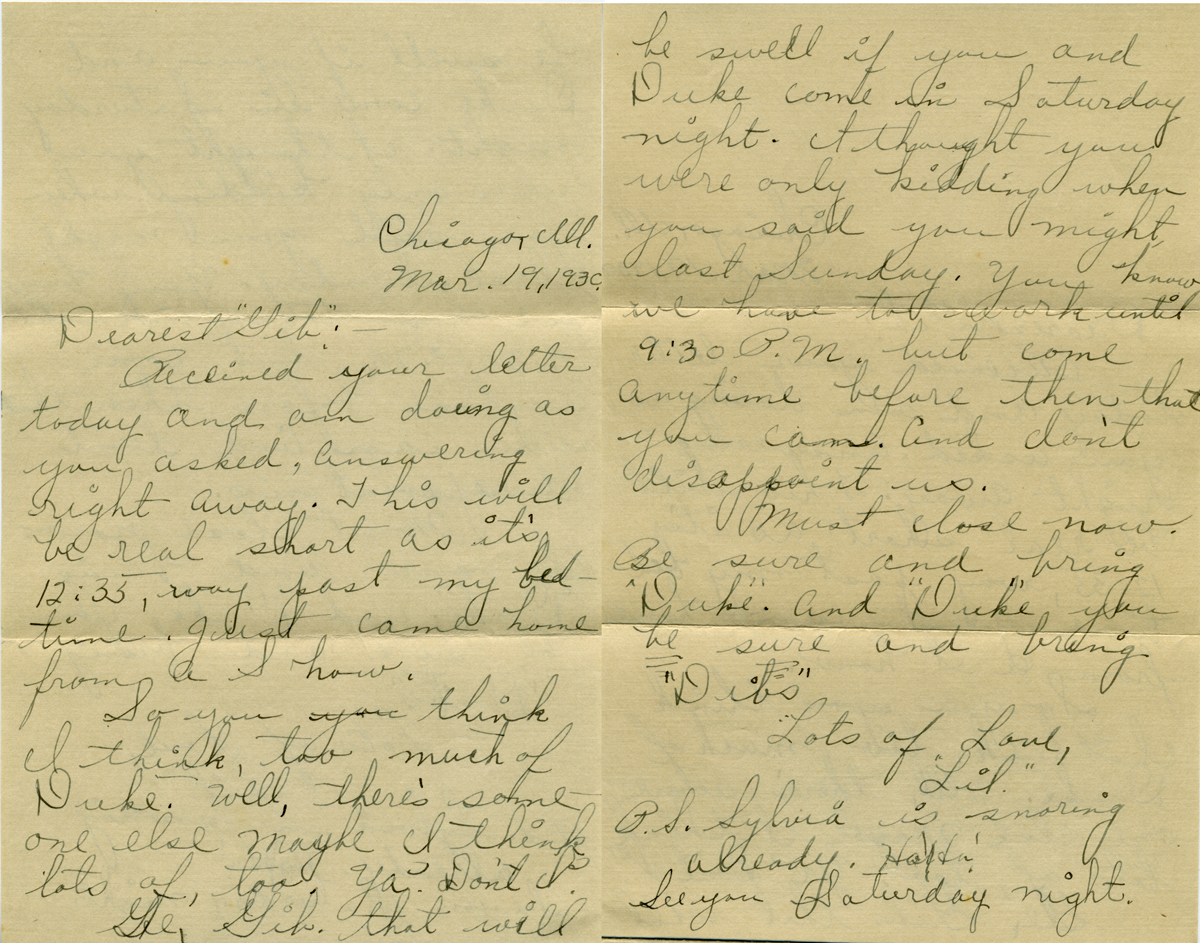 Chicago, Ill.
Mar. 19, 1930
Dearest "Gib":—
Received your letter
today and am doing as
you asked, answering
right away. This will
be real short as it's
12:35, way past my bed-
time. Just came home
from a Show.
So you you think
I think, too much of
Duke. Well, there's some-
one else maybe I think
lots of, too. Ya? Don't I?
Gee, Gib. that will
be swell if you and
Duke come in Saturday
night. I thought you
were only kidding when
you said you might
last Sunday. You know
we have to work until
9:30 P.M. but come
anytime before then that
you can. And don't
disappoint us.
Must close now.
Be sure and bring
"Duke". And "Duke" you
be sure and bring
"Dibs"
Lots of Love,
"Lil."
P.S. Sylvia is snoring
already. Ha! Ha!
See you Saturday night.